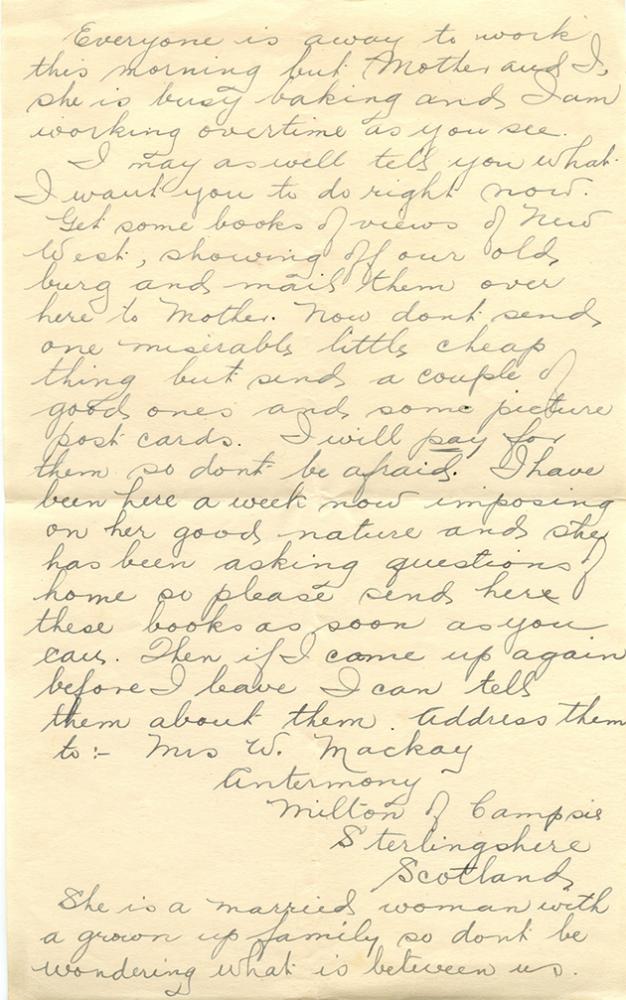 Everyone is away to work
this morning but Mother and I,
she is busy baking and I am
working overtime as you see.
I may as well tell you what
I want you to do right now.
Get some books of views of New
West, showing off our old
burg and mail them over
here to Mother. Now dont send
one miserable little cheap
thing but send a couple of
good ones and some picture
post cards. I will pay for
them so dont be afraid. I have
been here a week now imposing
on her good nature and she
has been asking questions of
home so please send here
these books as soon as you
can. Then if I come up again
before I leave I can tell
them about them. Address them
to:- Mrs W. Mackay
Antermony
Milton of Campsie
Sterlingshire
Scotland
She is a married woman with
a grown up family so dont be
wondering what is between us.